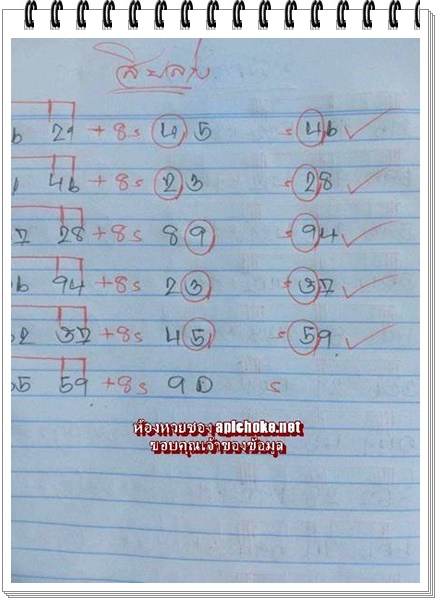 6 29 +8= 45 =46
46 +8= 23 =28
7 28 +8= 89 =94
6 94 +8= 23 =37
2 37 +8= 45 =59
55 59 +8= 90 =
ห้องหวยซอง apichoke.net
ขอบคุณเจ้าของข้อมูล